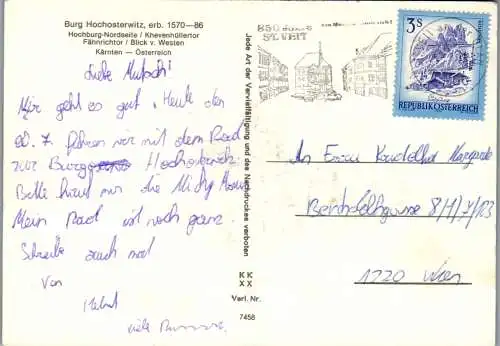 Burg Hochosterwitz, erb. 1570—86
Hochburg-Nordseite / Khevenhüllertor
Fähnrichtor / Blick v. Westen
Kärnten — Österreich
Liebe Mutsch!
Mir geht es gut. Heute den
20. 7. fahren wir mit dem Rad
zur Burg Hochosterwitz.
Bitte kauf mir die Micky Maus.
Mein Rad ist noch ganz.
Schreibe auch mal
Von
Helmut
viele
Jede Art der Vervielfältigung und des Nachdruckes verboten
KK
XX
Verl. Nr.
7458
850 JAHRE
ST. VEIT
3 S
REPUBLIK ÖSTERREICH
An Frau
8/1/7/103
1220 Wien